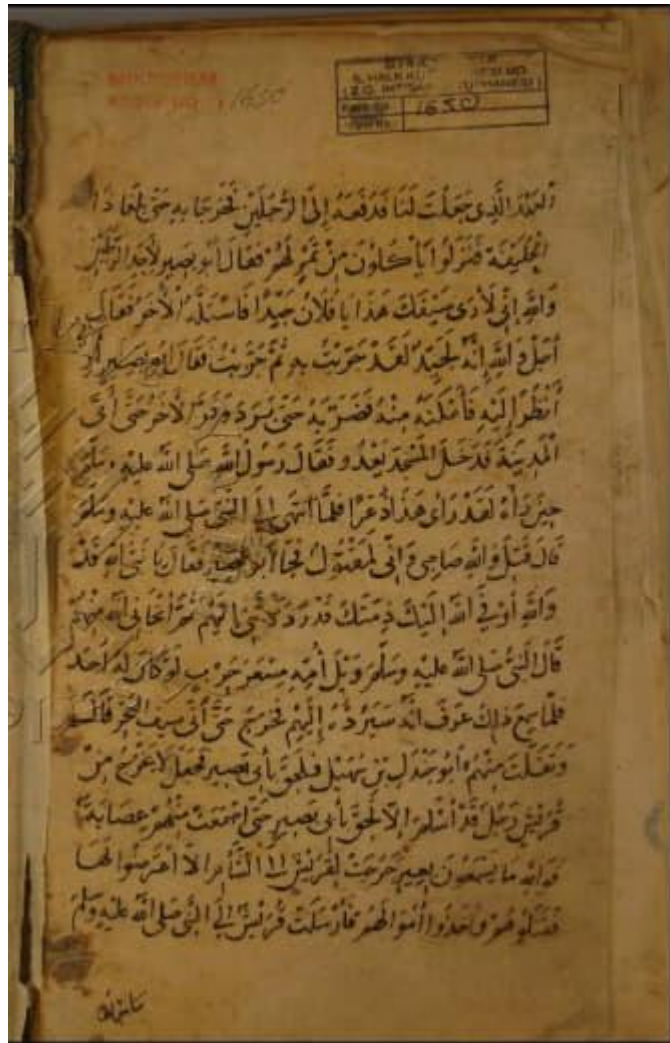 1650
1650
العهد الذي جعلت لنا فدفعه الى الرجلين فخرجا به حتى بلغا ذا
الحليفة فنزلوا يأكلون من تمر لهم فقال ابو بصير لاحد الرجلين
والله اني لأرى سيفك هذا يا فلان جيدا فاستله الآخر فقال
اجل والله انه لجيد لقد جربت به ثم جربت فقال ابو بصير أرني
أنظر إليه فأمكنه منه فضربه حتى برد وفر الآخر حتى أتى
المدينة فدخل المسجد يعدو فقال رسول الله صلى الله عليه وسلم
حين رآه لقد رأى هذا ذعرا فلما انتهى إلى النبي صلى الله عليه وسلم
قال قتل والله صاحبي واني لمقتول فجاء أبو بصير فقال يا نبي الله قد
والله أوفى الله إليك ذمتك قد رددتني إليهم ثم أنجاني الله منهم
قال النبي صلى الله عليه وسلم ويل أمه مسعر حرب لو كان له أحد
فلما سمع ذلك عرف أنه سيرده إليهم فخرج حتى أتى سيف البحر قال
وتفلت منهم أبو جندل بن سهيل فلحق بأبي بصير فجعل لا يخرج من
قريش رجل قد أسلم إلا لحق بأبي بصير حتى اجتمعت منهم عصابة
فوالله ما يسمعون بعير خرجت لقريش إلى الشام الا اعترضوا لها
فقتلوهم وأخذوا أموالهم فأرسلت قريش إلى النبي صلى الله عليه وسلم